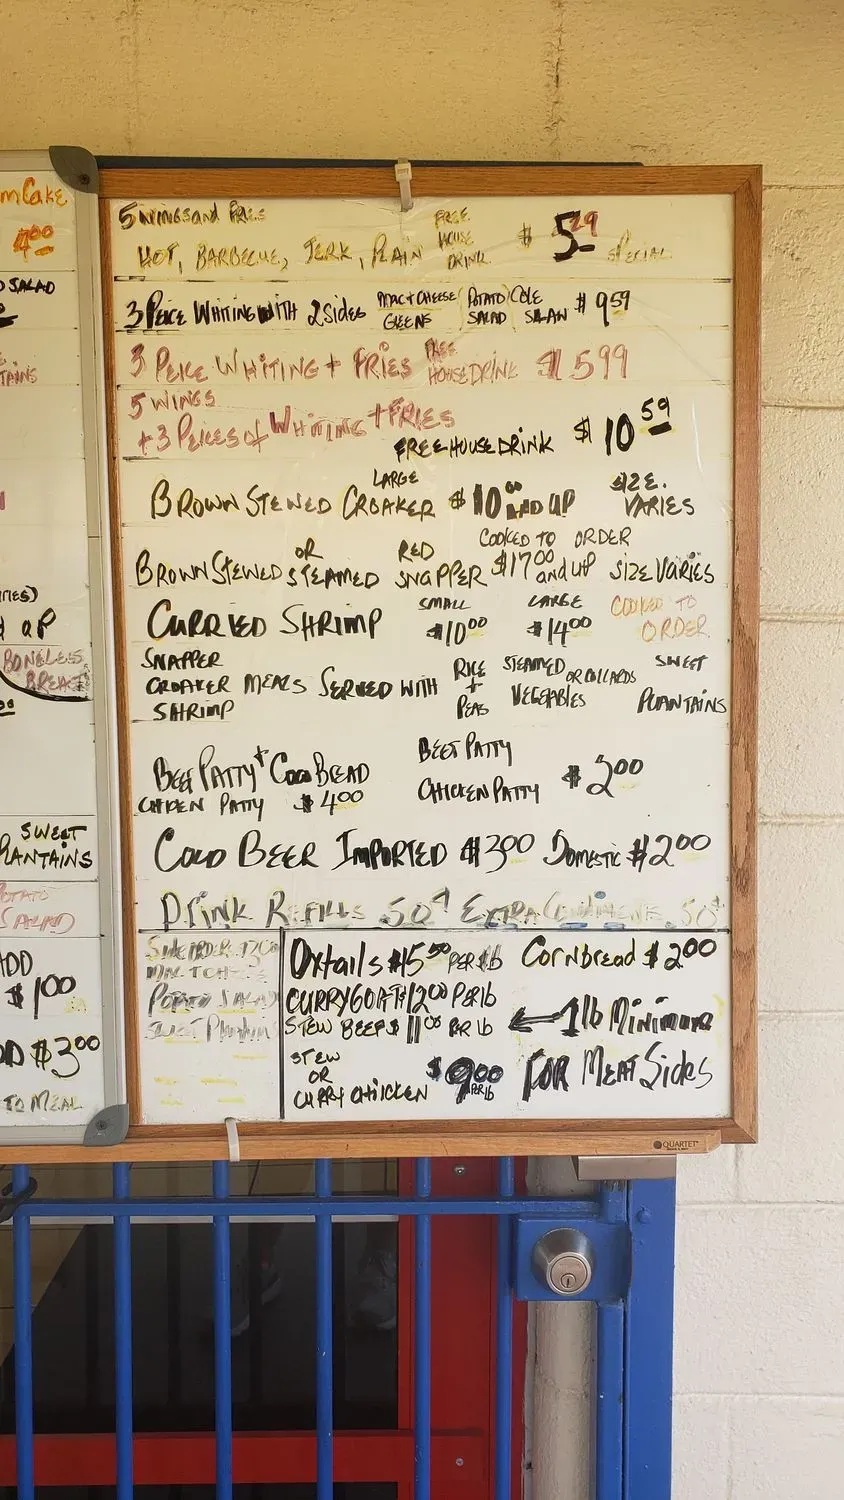 mCake
4.00
SALAD
TAINS
UP
BONELESS
BREAST
SWEET
PLANTAINS
POTATO
SALAD
ADD
$1.00
$3.00
TO MEAL
5 WINGS and FRIES
HOT, BARBECUE, JERK, PLAIN FREE HOUSE DRINK $5.29 SPECIAL
3 PEICE WHITING WITH 2 SIDES MAC + CHEESE/ GREENS POTATO SALAD COLE SLAW $9.59
3 PEICE WHITING + FRIES FREE HOUSE DRINK $15.99
5 WINGS
+ 3 PEICES of WHITING + FRIES
FREE HOUSE DRINK $10.59
BROWN STEWED LARGE CROAKER $10.00 AND UP SIZE VARIES
COOKED TO ORDER
BROWN STEWED OR STEAMED RED SNAPPER $17.00 and UP SIZE VARIES
CURRIED SHRIMP SMALL $10.00 LARGE $14.00 COOKED TO ORDER
SNAPPER
CROAKER MEALS SERVED WITH RICE + PEAS STEAMED VEGETABLES OR COLLARDS SWEET PLANTAINS
SHRIMP
BEEF PATTY + Coco BREAD BEEF PATTY
CHICKEN PATTY $4.00 CHICKEN PATTY $2.00
COLD BEER IMPORTED $3.00 DOMESTIC $2.00
DRINK REFILLS .50¢ EXTRA CONDIMENTS .50¢
POTATO SALAD
SWEET Plantains
Oxtails $15.50 PER lb Cornbread $2.00
CURRY GOAT $12.00 PER lb
STEW BEEF $11.00 PER lb ← 1 lb Minimum
STEW
OR
CURRY CHICKEN $9.00 PER lb FOR MEAT Sides
QUARTET